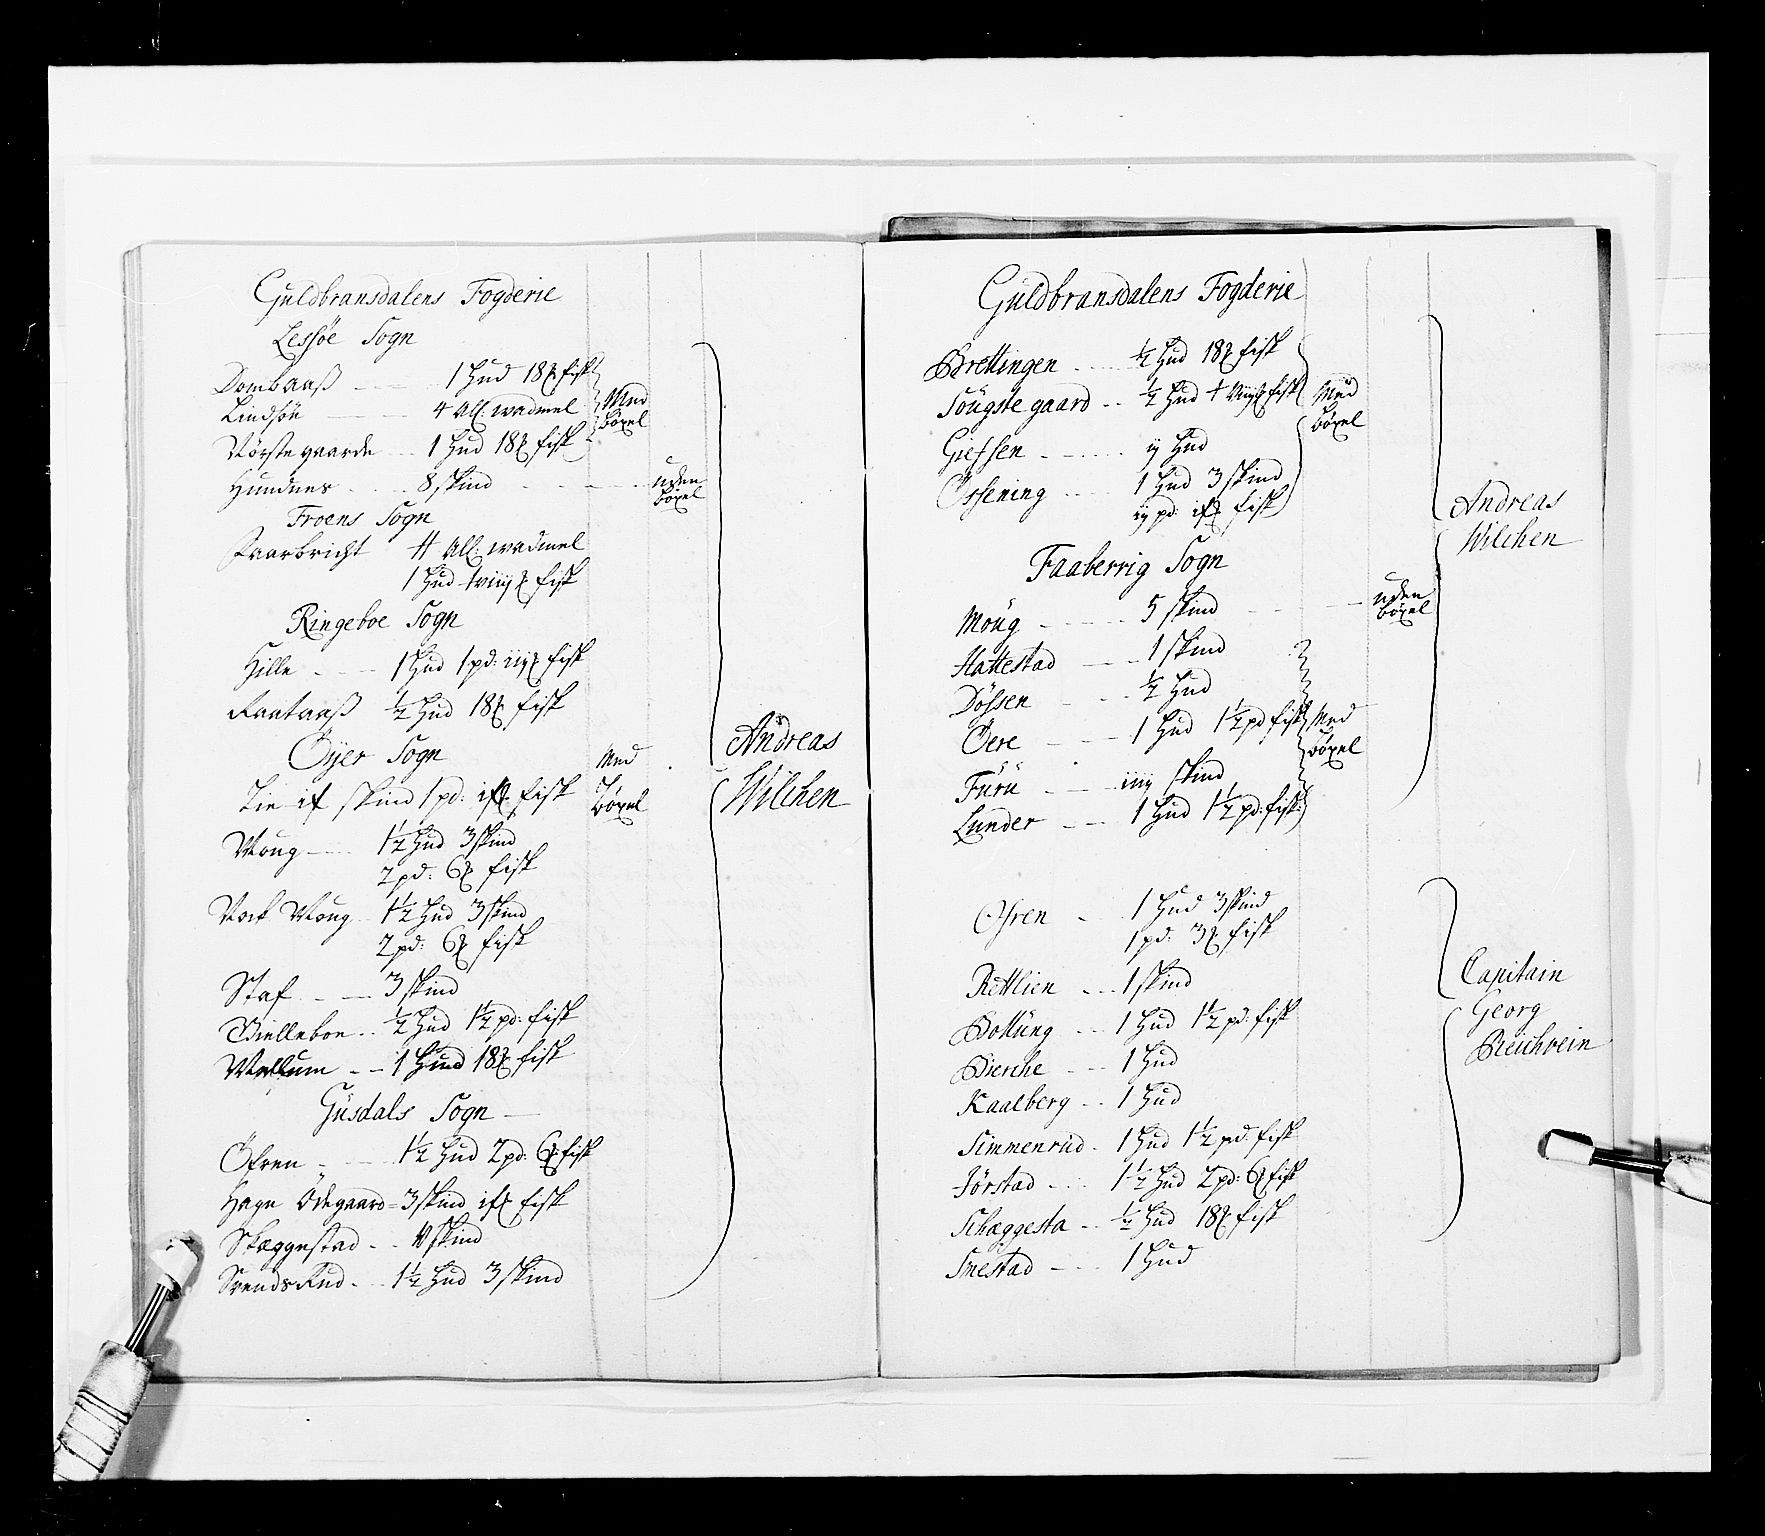 Guldbransdalens Fogderie
Lessöe Sogn
Dombaaß 1 Hud 18 ℔ fisk
Lindsöe 4 All: wadmel
Med böxel
Nörste gaarde 1 Hud 18 ℔ fisk
Hundnes 8 skind
uden böxel
Froens Sogn
All: wadmel
1 Hud fisk
Ringeboe Sogn
Hille 1 Hud 1 pd: iij ℔ fisk
Raataaß ½ Hud 18 ℔ fisk
Öyer Sogn
Lie if skind 1 pd: fisk
Med böxel
Andreas
Wilchen
Moug 1½ Hud 3 skind
2 pd: 6 ℔ fisk
Nock Moug 1½ Hud 3 skind
2 pd: 6 ℔ fisk
Staf 3 skind
Bielleboe ½ Hud 1½ pd: fisk
Mallum 1 Hud 18 ℔ fisk
Gusdals Sogn
Öfren 1½ Hud 2 pd: 6 ℔ fisk
Hage Ödegaard 3 skind if ℔ fisk
Skæggestad skind
Svends Rud 1½ Hud 3 skind
Guldbransdalens Fogderie
Brettingen ½ Hud 18 ℔ fisk
Söugste gaard ½ Hud fisk
Med
böxel
Giefsen ij Hud
Össening 1 Hud 3 skind
ij pd: if ℔ fisk
Andreas
Wilchen
Faaberrig Sogn
Moug 5 skind
uden
böxel
Hattestad 1 skind
Dössen ½ Hud
Öere 1 Hud 1½ pd fisk
Med
böxel
Furu iiij skind
Lunder 1 Hud 1½ pd: fisk
Ofren 1 Hud 3 skind
1 pd: 3 ℔ fisk
Rettlien 1 skind
Capitain
Georg
Reichvein
Bottung 1 Hud 1½ pd: fisk
Bierche 1 Hud
Kaalberg 1 Hud
Simmenrud 1 Hud 1½ pd: fisk
Jörstad 1½ Hud 2 pd: 6 ℔ fisk
Schæggesta ½ Hud 18 ℔ fisk
Smestad 1 Hud